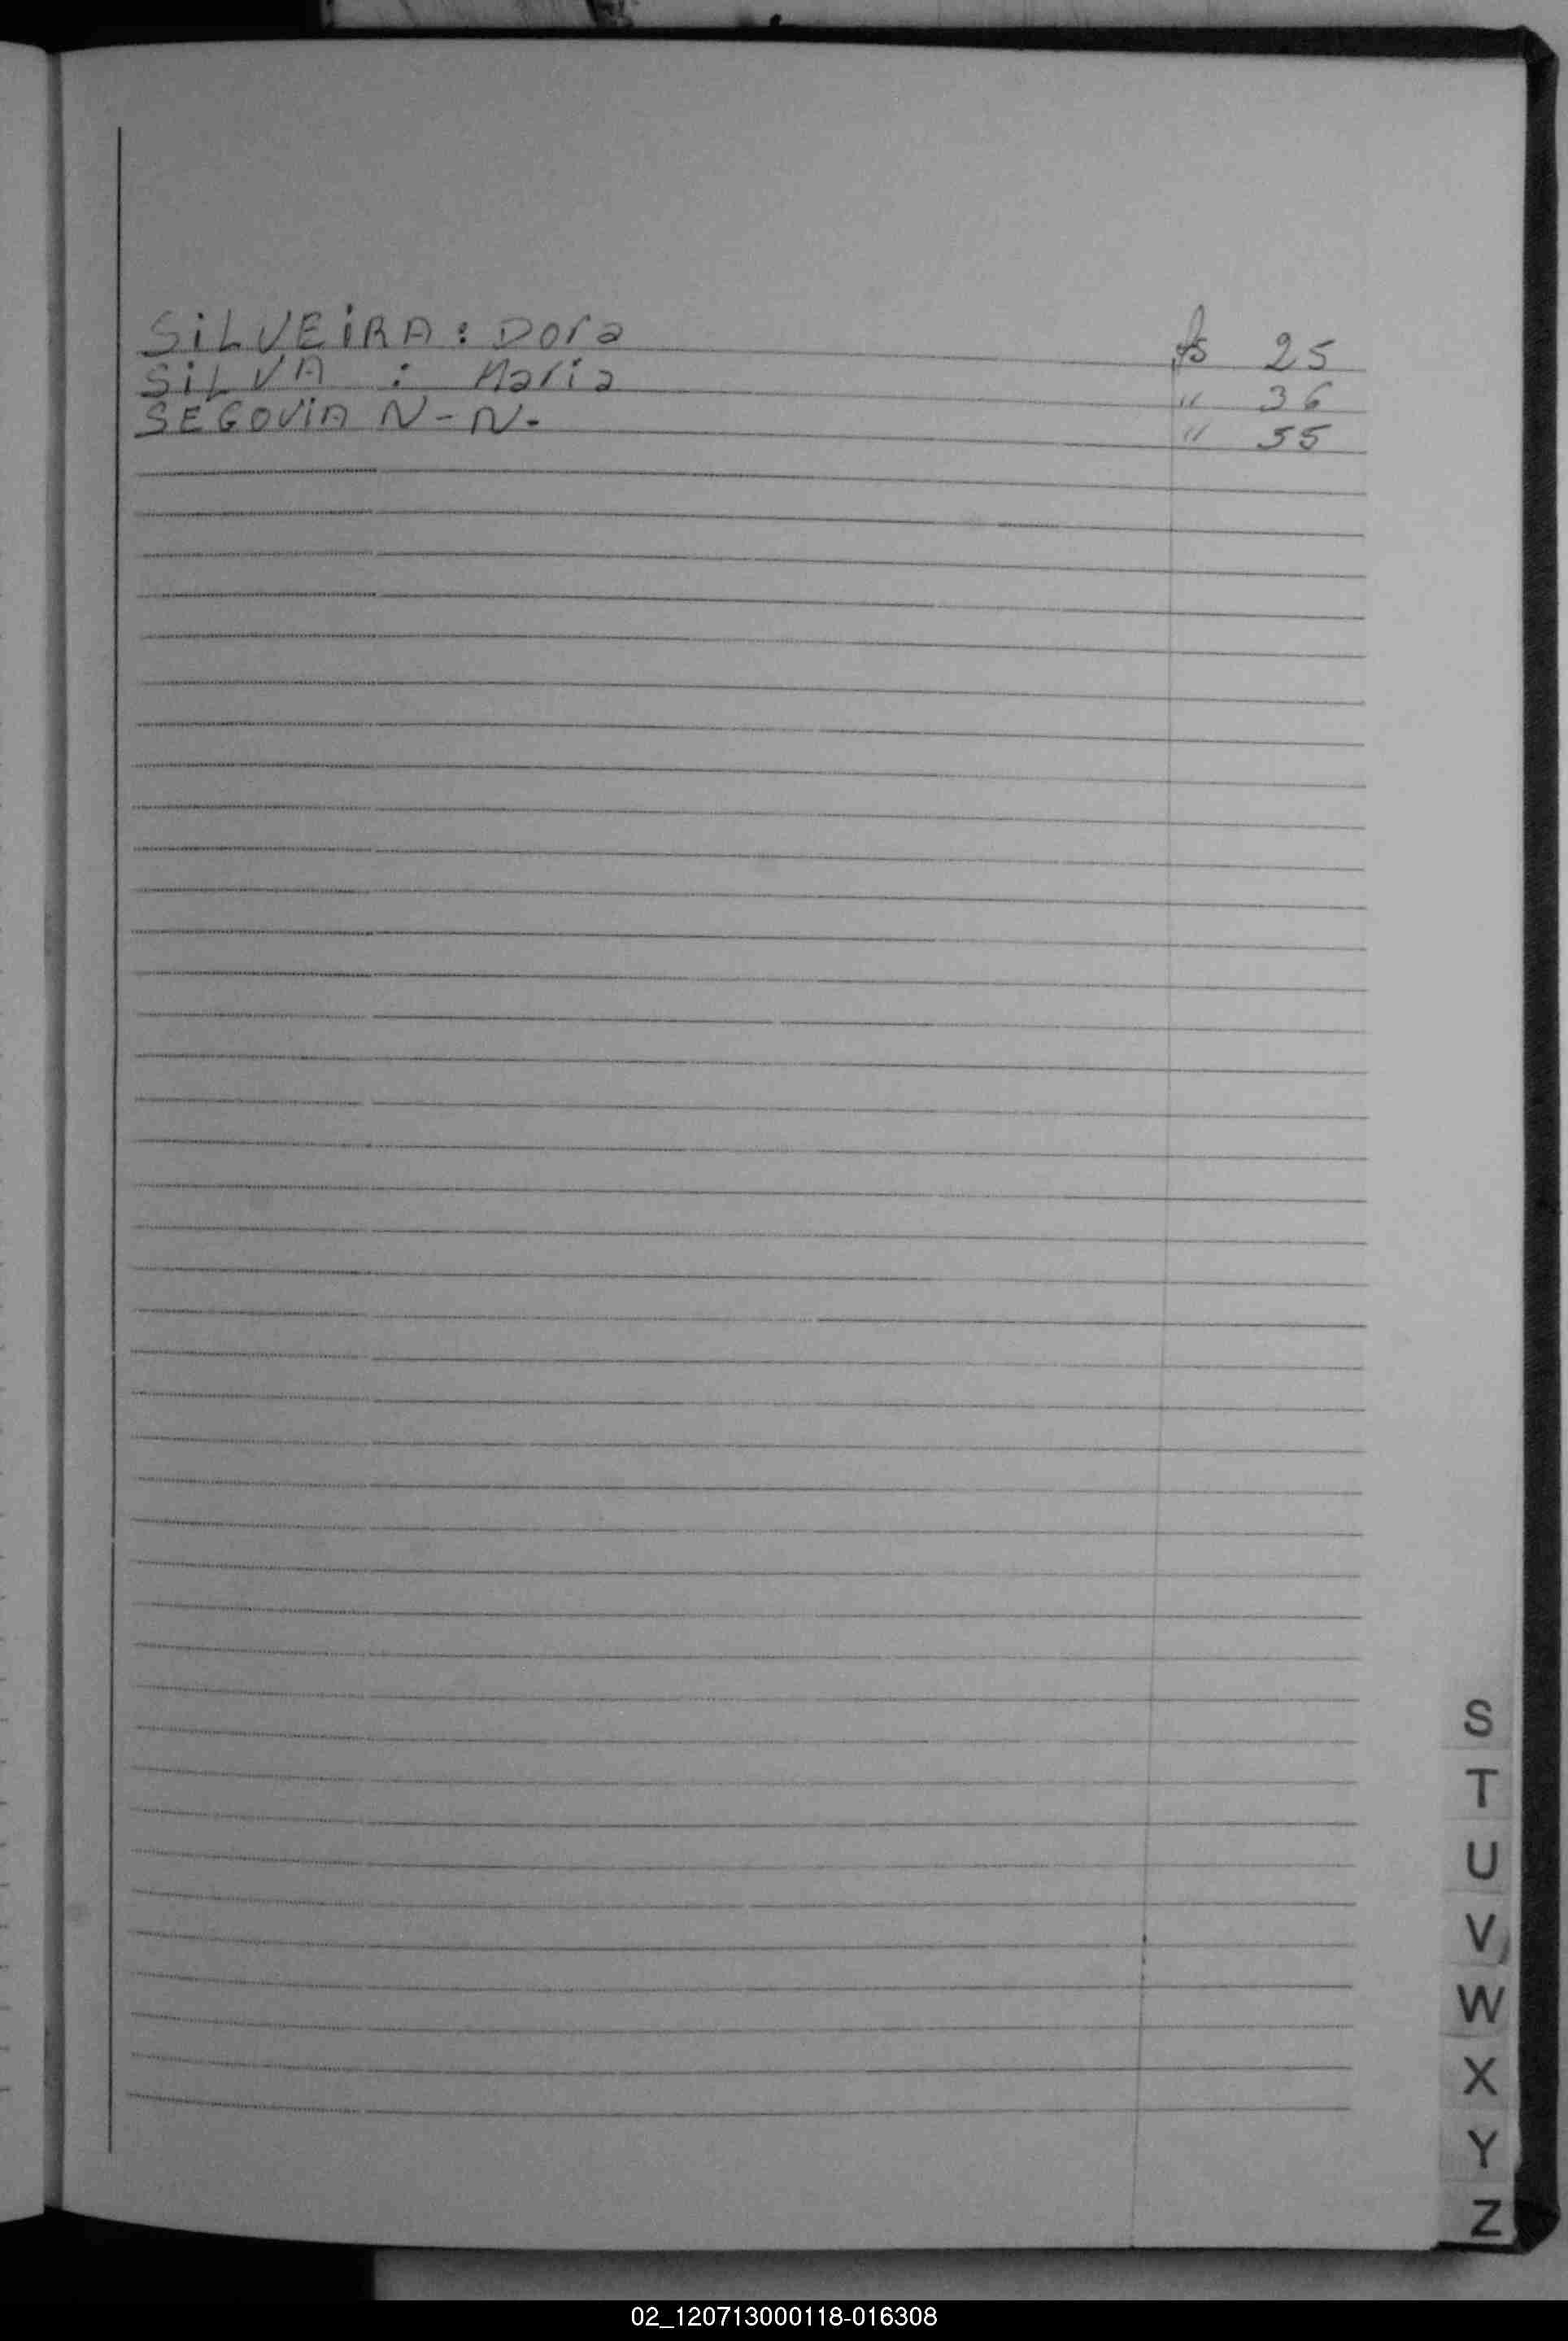 SiLVEiRA : Dora fs 25
SiLVA : Maria " 36
SEGOViA N-N. " 55
S
T
U
V
W
X
Y
Z
02_120713000118-016308